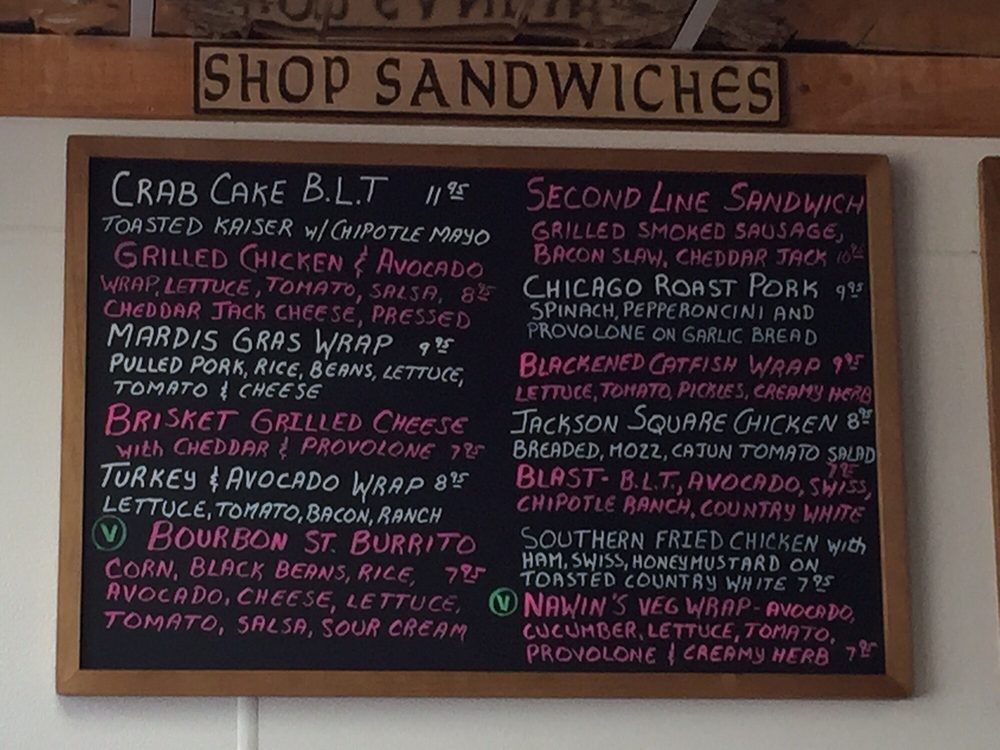 SHOP SANDWICHES
CRAB CAKE B.L.T 11.95
TOASTED KAISER w/ CHIPOTLE MAYO
GRILLED CHICKEN & AVOCADO
WRAP, LETTUCE, TOMATO, SALSA, 8.95
CHEDDAR JACK CHEESE, PRESSED
MARDIS GRAS WRAP 9.95
PULLED PORK, RICE, BEANS, LETTUCE,
TOMATO & CHEESE
BRISKET GRILLED CHEESE
with CHEDDAR & PROVOLONE 7.95
TURKEY & AVOCADO WRAP 8.95
LETTUCE, TOMATO, BACON, RANCH
V BOURBON ST. BURRITO
CORN, BLACK BEANS, RICE, 7.95
AVOCADO, CHEESE, LETTUCE,
TOMATO, SALSA, SOUR CREAM
SECOND LINE SANDWICH
GRILLED SMOKED SAUSAGE,
BACON SLAW, CHEDDAR JACK
CHICAGO ROAST PORK 9.95
SPINACH, PEPPERONCINI AND
PROVOLONE ON GARLIC BREAD
BLACKENED CATFISH WRAP 9.95
LETTUCE, TOMATO, PICKLES, CREAMY HERB
JACKSON SQUARE CHICKEN 8.95
BREADED, MOZZ, CAJUN TOMATO SALAD
7.95
BLAST- B.L.T., AVOCADO, SWISS,
CHIPOTLE RANCH, COUNTRY WHITE
SOUTHERN FRIED CHICKEN with
HAM, SWISS, HONEYMUSTARD ON
TOASTED COUNTRY WHITE 7.95
V NAWIN'S VEG WRAP- AVOCADO,
CUCUMBER, LETTUCE, TOMATO,
PROVOLONE & CREAMY HERB 7.95